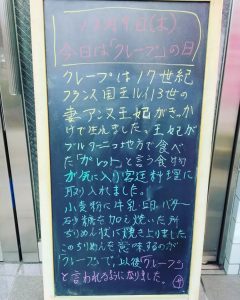 12月9日(木)
今日は「クレープ」の日
クレープは17世紀
フランス国王ルイ13世の
妻アンヌ王妃がきっか
けで生れました。王妃が
ブルターニュ地方で食べ
た「ガレット」と言う食物
が気に入り宮廷料理に
取り入れました。
小麦粉に牛乳、玉子、バター
砂糖を加え焼いた所
ちりめん状に焼き上りました。
このちりめんを意味するのが
「クレープ」で、以後「クレープ」
と言われる様になりました。